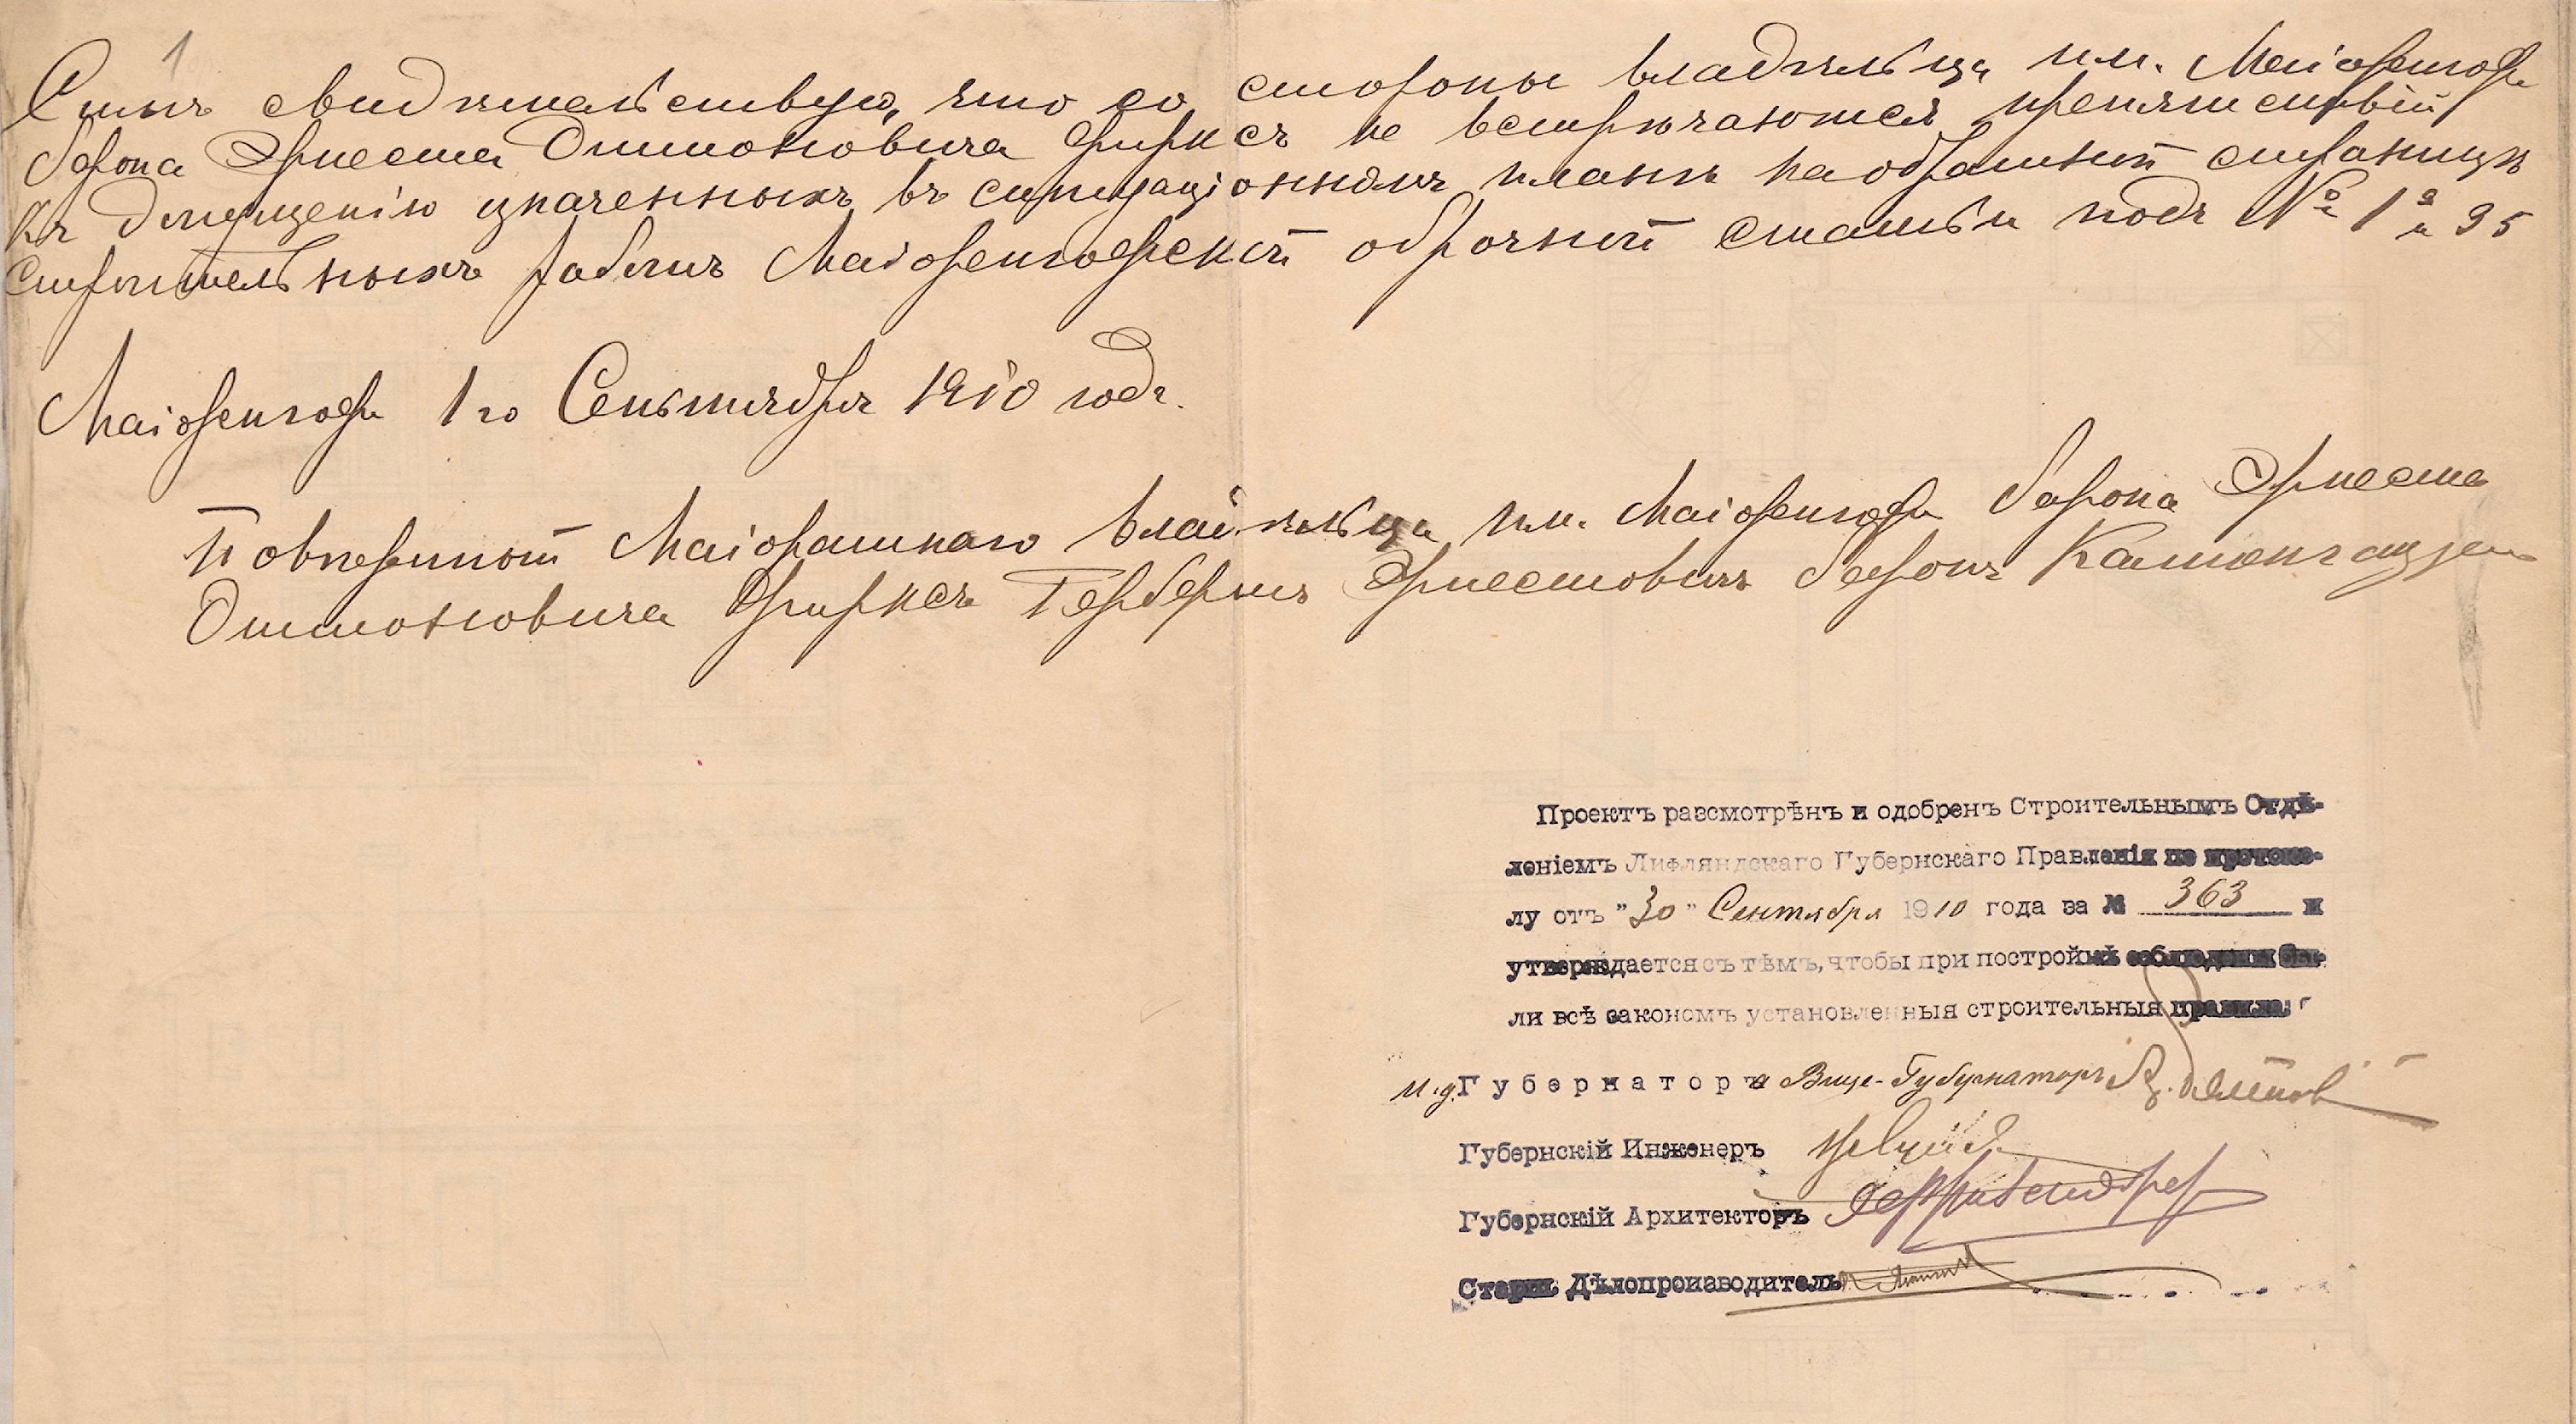 1
Симъ свидѣтельствую, что со стороны владѣльца им. Маіоренгофъ
барона Эрнеста Оттоновича Фирксъ не встрѣчаются препятствій
къ допущенію означенныхъ въ ситуаціонномъ планѣ на обратной страницѣ
строительныхъ работъ Маіоренгофской оброчной статьи подъ № 1 95
Маіоренгофъ 1го Сентября 1910 года.
Повѣренный Маіоратнаго владѣльца им. Маіоренгофъ барона Эрнеста
Оттоновича Фирксъ Гербертъ Эрнестовичъ баронъ
Проектъ разсмотрѣнъ и одобренъ Строительнымъ Отдѣ-
леніемъ Лифляндскаго Губернскаго Правленія по протоко-
лу отъ "30" Сентября 1910 года за № 363 и
утверждается съ тѣмъ, чтобы при постройкѣ соблюдены бы-
ли всѣ закономъ установленныя строительныя правила.
И.д. Губернатора Вице-Губернаторъ
Губернскій Инженеръ
Губернскій Архитекторъ
Старш Дѣлопроизводитель